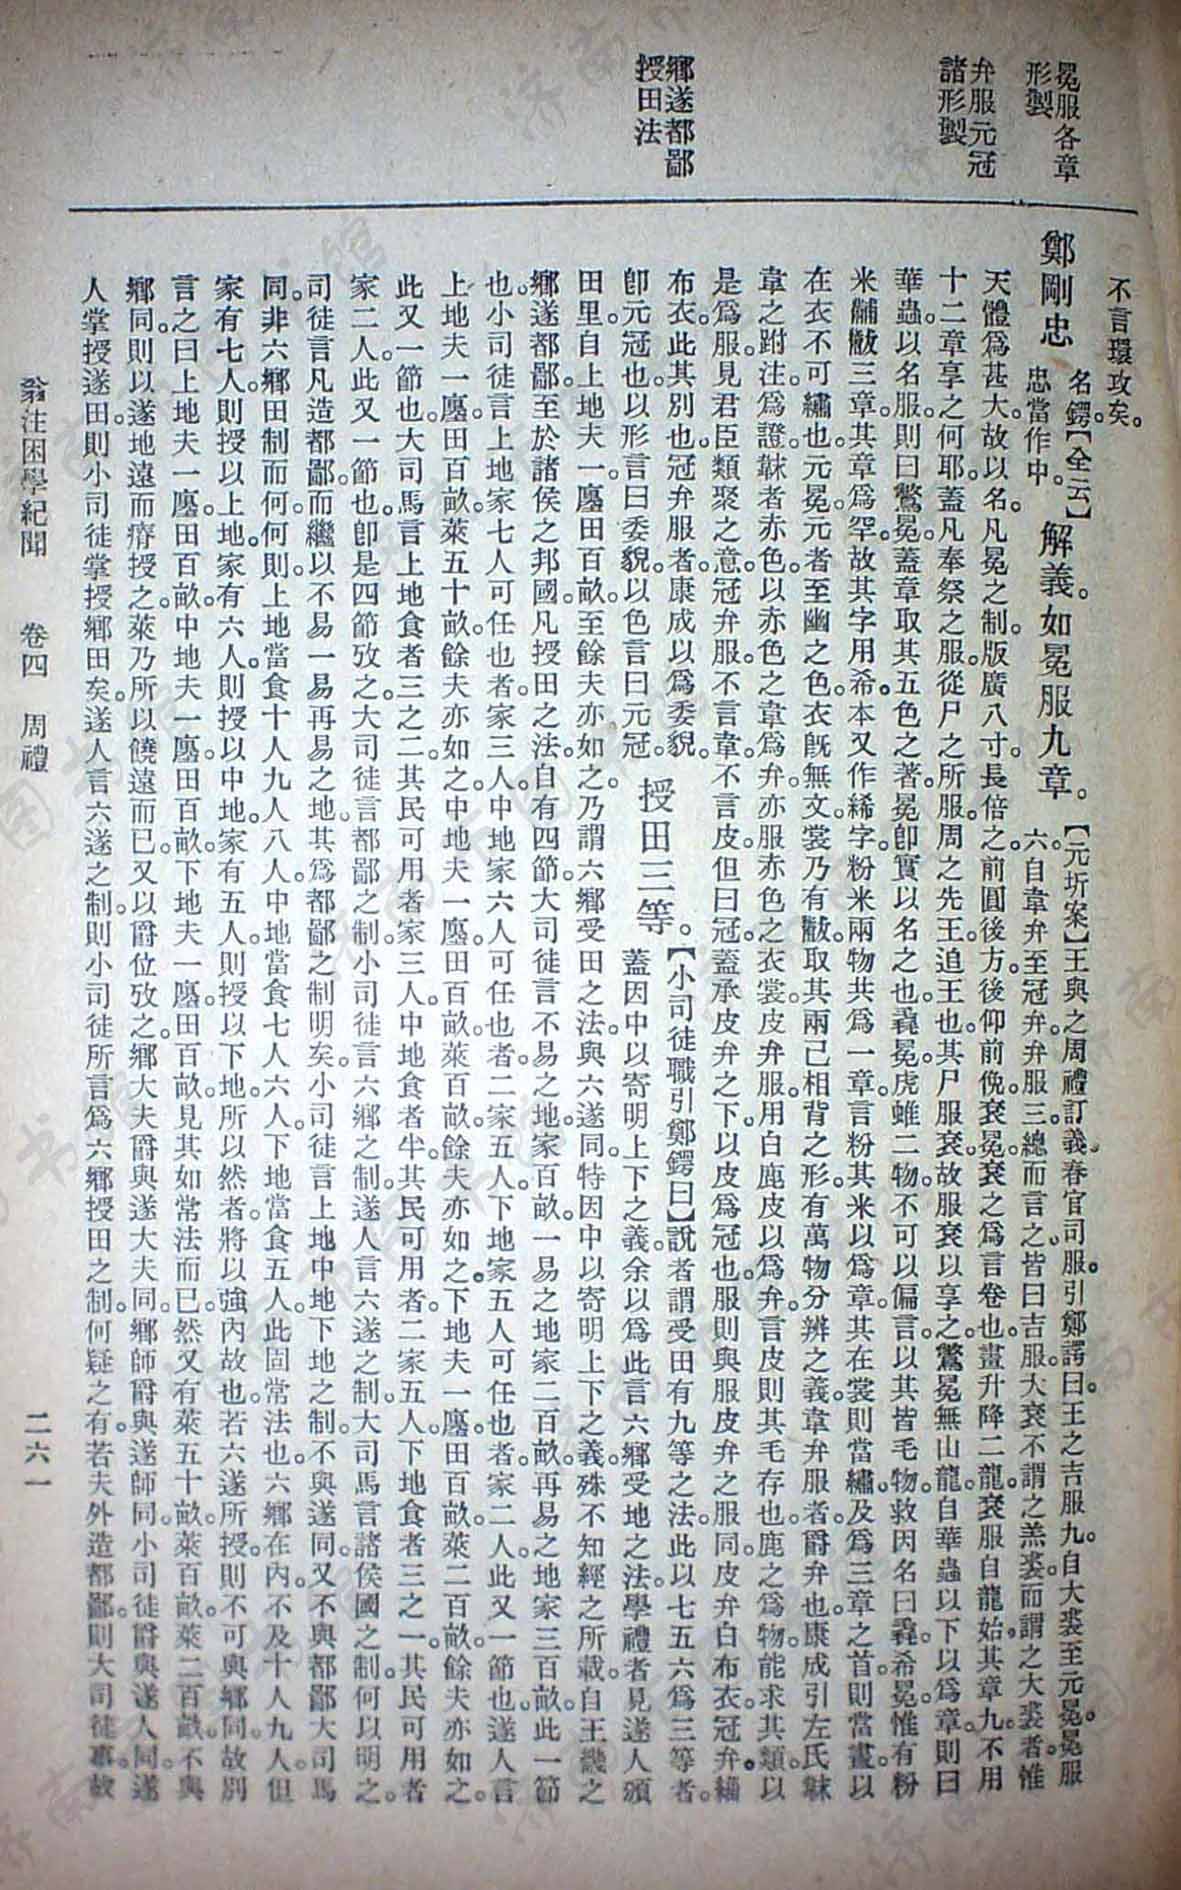 冕服各章
形製
弁服元冠
諸形製
鄉遂都鄙
授田法
不言環攻矣。
鄭剛忠
名鍔【全云】
忠當作中。
解義。如冕服九章。
【元圻案】王與之周禮訂義春官司服引鄭諤曰。王之吉服九。自大裘至元冕。冕服
六。自韋弁至冠弁。弁服三。總而言之。皆曰吉服。大裘不謂之羔裘。而謂之大裘者。惟
天體爲甚大。故以名。凡冕之制。版廣八寸。長倍之。前圓後方。後仰前俛。袞冕。袞之爲言卷也。畫升降二龍。袞服自龍始。其章九。不用
十二章享之何耶。蓋凡奉祭之服。從尸之所服。周之先王。追王也。其尸服袞。故服袞以享之。鷩冕無山龍。自華蟲以下以爲章。則曰
華蟲。以名服。則曰鷩冕。蓋章取其五色之著。冕卽實以名之也。毳冕。虎蜼二物。不可以偏言。以其皆毛物。救因名曰毳。希冕。惟有粉
米黼黻三章。其章爲罕。故其字用希。本又作絺字。粉米兩物共爲一章。言粉其米以爲章。其在裳則當繡。及爲三章之首。則當畫。以
在衣不可繡也。元冕。元者至幽之色。衣旣無文。裳乃有黻。取其兩己相背之形。有萬物分辨之義。韋弁服者。爵弁也。康成引左氏韎
韋之跗注爲證。韎者赤色。以赤色之韋爲弁。亦服赤色之衣裳。皮弁服。用白鹿皮以爲弁。言皮則其毛存也。鹿之爲物。能求其類。以
是爲服。見君臣類聚之意。冠弁服。不言韋。不言皮。但曰冠。蓋承皮弁之下。以皮爲冠也。服則與服皮弁之服同。皮弁白布衣。冠弁。緇
布衣。此其別也。冠弁服者。康成以爲委貌。
卽元冠也。以形言曰委貌。以色言曰元冠。
授田三等。
【小司徒職引鄭鍔曰】說者謂受田有九等之法。此以七五六爲三等者。
蓋因中以寄明上下之義。余以爲此言六鄉受地之法。學禮者見遂人頒
田里。自上地夫一廛。田百畝。至餘夫亦如之。乃謂六鄉受田之法。與六遂同。特因中以寄明上下之義。殊不知經之所載。自王畿之
鄉遂都鄙。至於諸侯之邦國。凡授田之法。自有四節。大司徒言不易之地。家百畝。一易之地家二百畝。再易之地家三百畝。此一節
也。小司徒言上地家七人。可任也者。家三人。中地家六人。可任也者。二家五人。下地家五人。可任也者。家二人。此又一節也。遂人言
上地夫一廛。田百畝。萊五十畝。餘夫亦如之。中地夫一廛。田百畝。萊百畝。餘夫亦如之。下地夫一廛。田百畝。萊二百畝。餘夫亦如之。
此又一節也。大司馬言上地食者三之二。其民可用者家三人。中地食者半。其民可用者。二家五人。下地食者三之一。其民可用者
家二人。此又一節也。卽是四節攷之。大司徒言都鄙之制。小司徒言六鄉之制。遂人言六遂之制。大司馬言諸侯國之制。何以明之。
司徒言凡造都鄙。而繼以不易一易再易之地。其爲都鄙之制明矣。小司徒言上地中地下地之制。不與遂同。又不與都鄙大司馬
同。非六鄉田制而何。何則。上地當食十人九人八人。中地當食七人六人。下地當食五人。此固常法也。六鄉在內。不及十人九人。但
家有七人。則授以上地。家有六人。則授以中地。家有五人。則授以下地。所以然者。將以強內故也。若六遂所授。則不可與鄉同。故別
言之曰上地夫一廛。田百畝。中地夫一廛。田百畝。下地夫一廛。田百畝。見其如常法而已。然又有萊五十畝。萊百畝。萊二百畝。不與
鄉同。則以遂地遠而瘠。授之萊。乃所以饒遠而已。又以爵位攷之。鄉大夫爵與遂大夫同。鄉師爵與遂師同。小司徒爵與遂人同。遂
人掌授遂田。則小司徒掌授鄉田矣。遂人言六遂之制。則小司徒所言爲六鄉授田之制。何疑之有。若夫外造都鄙。則大司徒事。故
翁注困學紀聞 卷四 周禮 二六一